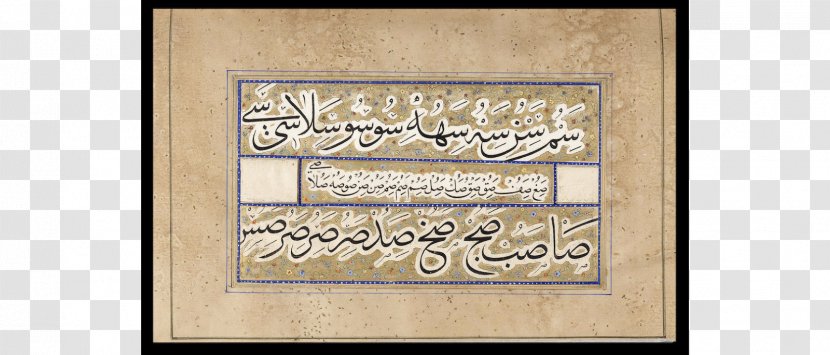 سم سن سنه سهه سو سو سلا سی سے
صع صف صق صق صك صل صم صم صن صن صو صه صلا صے
صا صب صح صخ صد صر صر صر صس